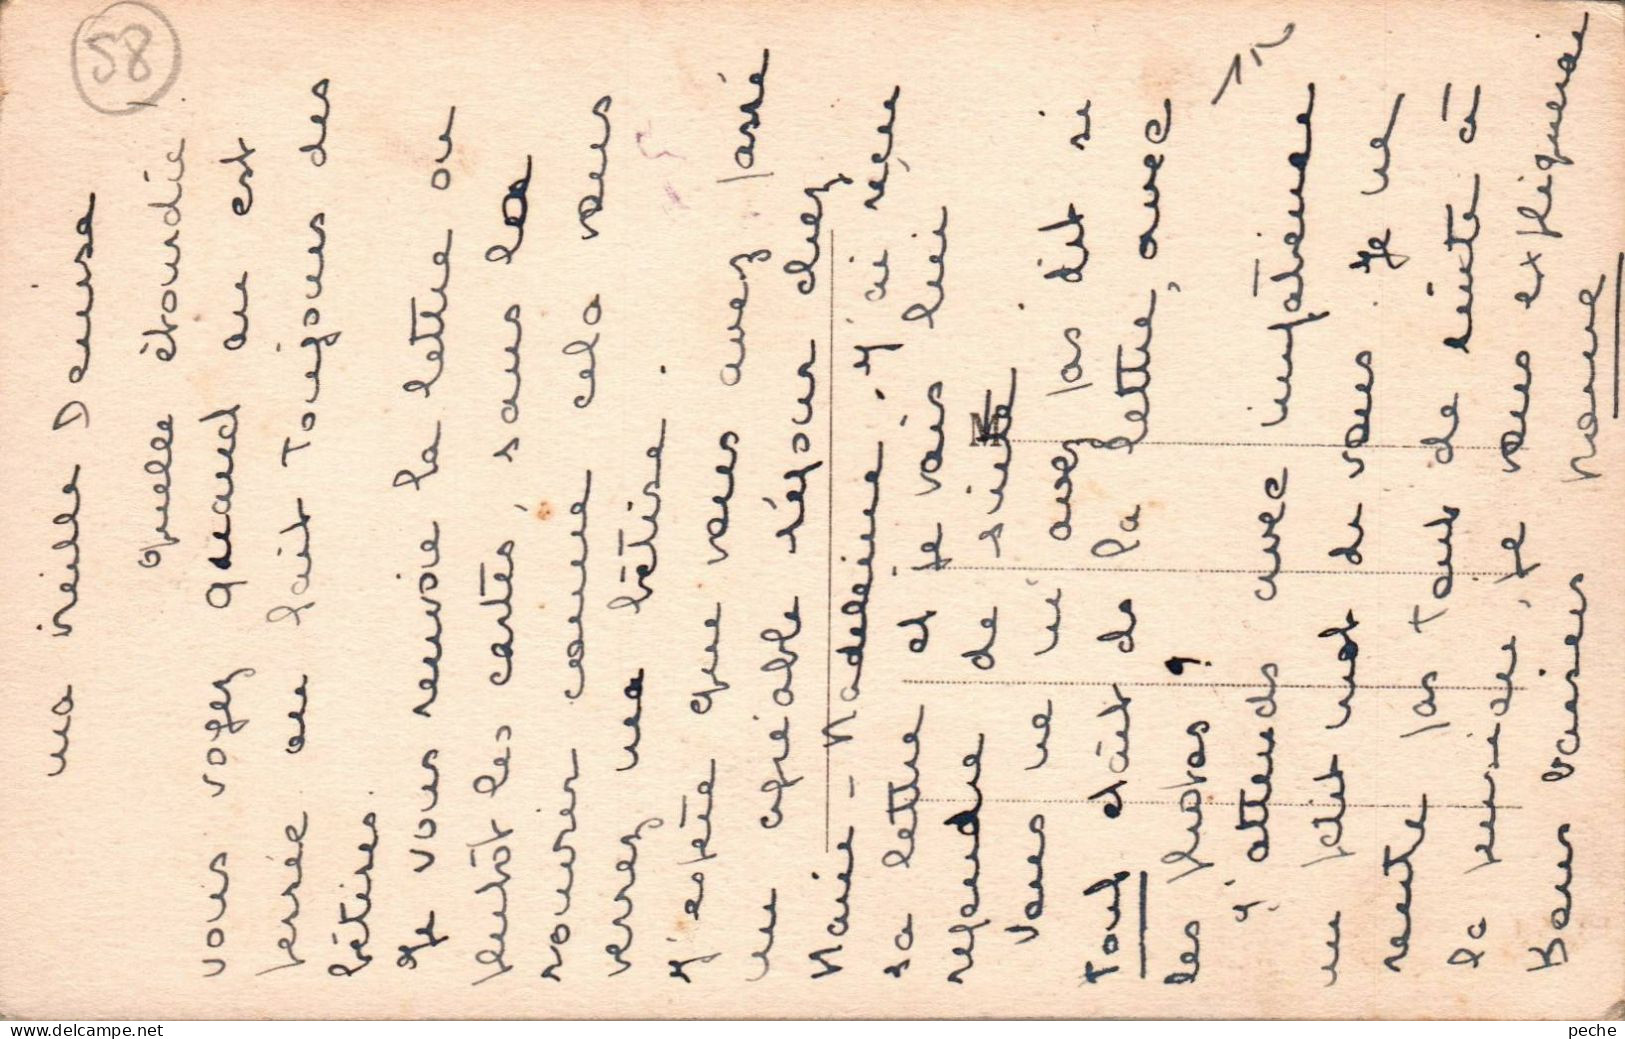 58
ma vieille Denise
Quelle étourdie
vous voyez quand on est
pressée on fait toujours des
bêtises.
Je vous renvoie la lettre ou
plutôt les cartes, sans les
vouvrir comme cela vous
verrez ma bêtise.
J'espère que vous avez passé
un agréable séjour chez
Marie-Madeleine, j'ai reçu
sa lettre et je vais lui
répondre de suite
Vous ne m'avez pas dit si
Tout était de la lettre, avec
les photos ?
J'attends avec impatience
un petit mot de vous. Je ne
rentre pas tout de suite à
la pension, je vous expliquerai
Bons baisers Nonne
www.delcampe.net
peche